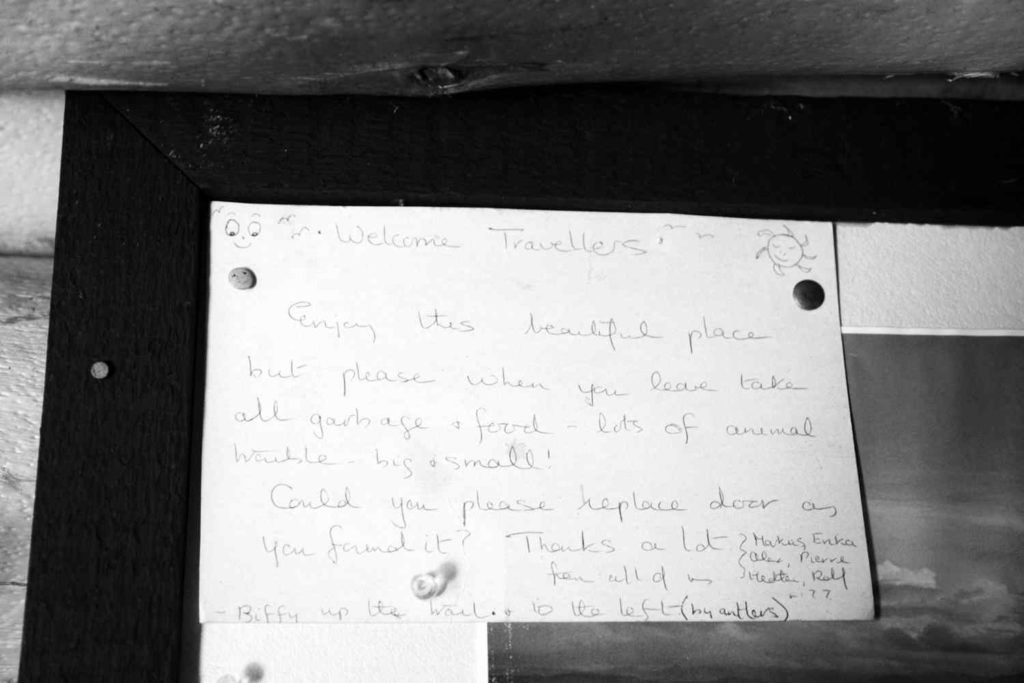 Welcome Travellers
Enjoy this beautiful place
but please when you leave take
all garbage + food - lots of animal
trouble - big + small!
Could you please replace door as
you found it? Thanks a lot
from all of us
Erika
Pierre
Rolf
??
- Biffy up the trail + to the left (by antlers)